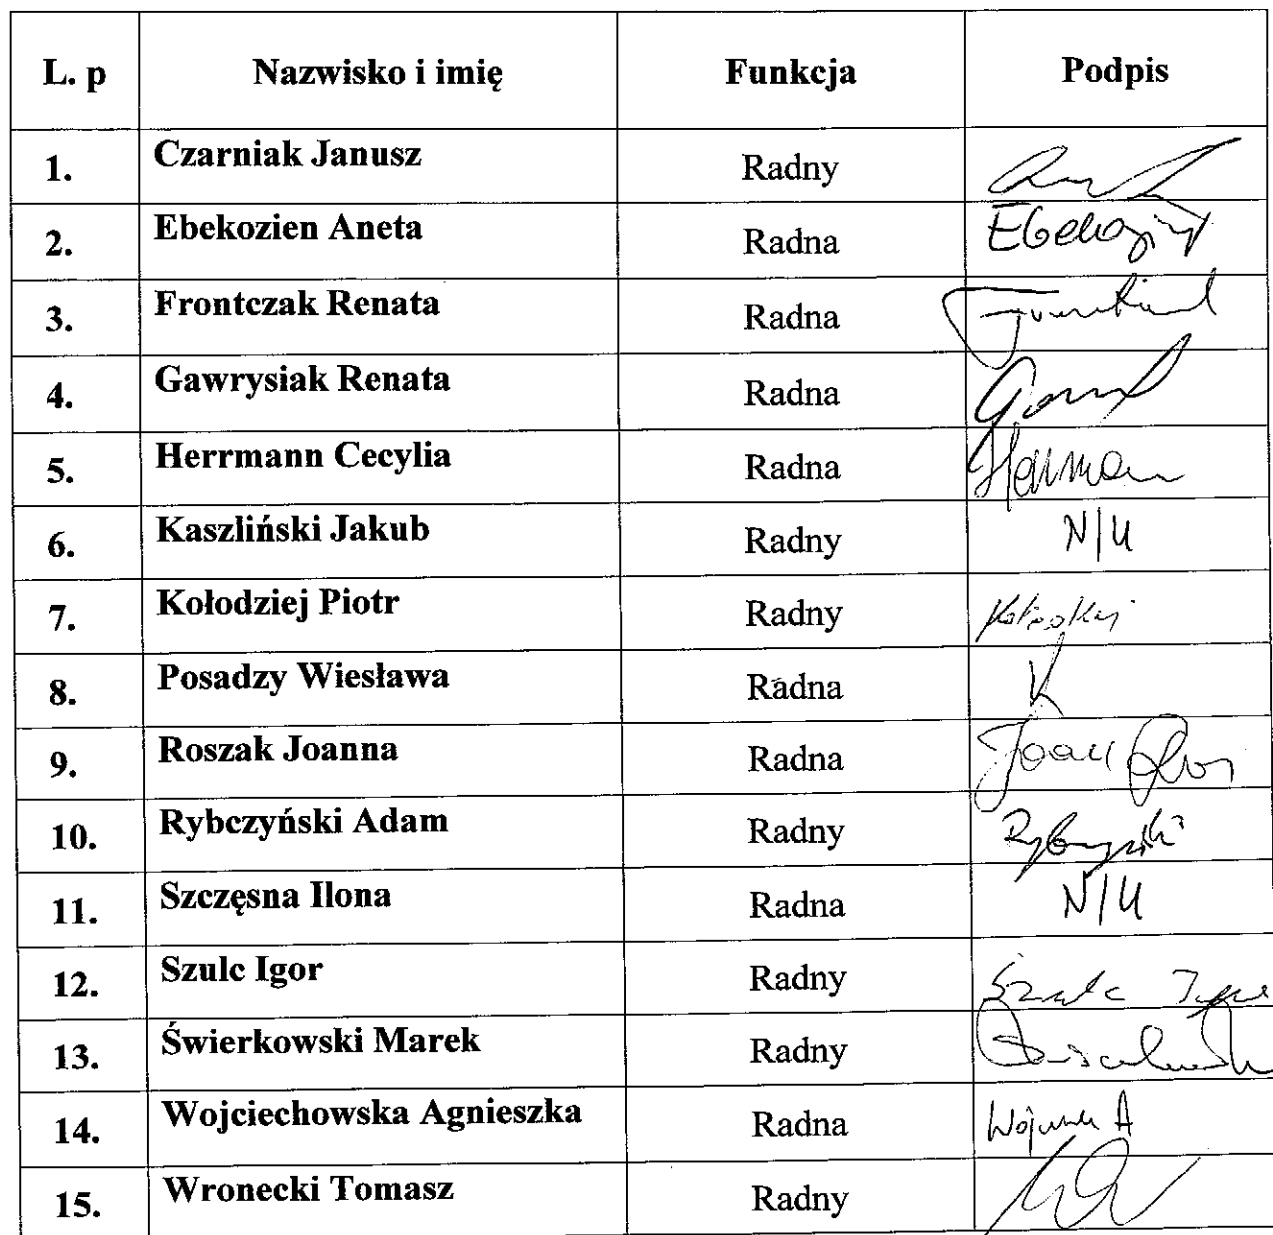 L. p Nazwisko i imię Funkcja Podpis
1. Czarniak Janusz Radny
2. Ebekozien Aneta Radna Ebekozien
3. Frontczak Renata Radna
4. Gawrysiak Renata Radna
5. Herrmann Cecylia Radna Herrmann
6. Kaszliński Jakub Radny N/U
7. Kołodziej Piotr Radny
8. Posadzy Wiesława Radna
9. Roszak Joanna Radna
10. Rybczyński Adam Radny Rybczyński
11. Szczęsna Ilona Radna N/U
12. Szulc Igor Radny Szulc Igor
13. Świerkowski Marek Radny
14. Wojciechowska Agnieszka Radna
15. Wronecki Tomasz Radny